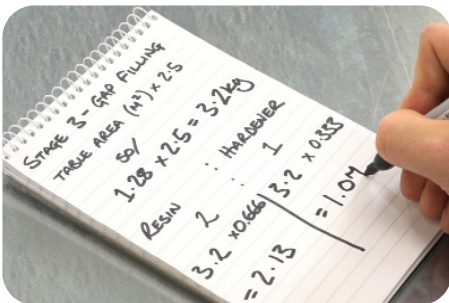 STAGE 3 - GAP FILLING
TABLE AREA (M²) x 2.5
SO/
1.28 x 2.5 = 3.2kg
RESIN : HARDENER
2 : 1
3.2 x0.666 / 3.2 x 0.333
= 2.13 = 1.07